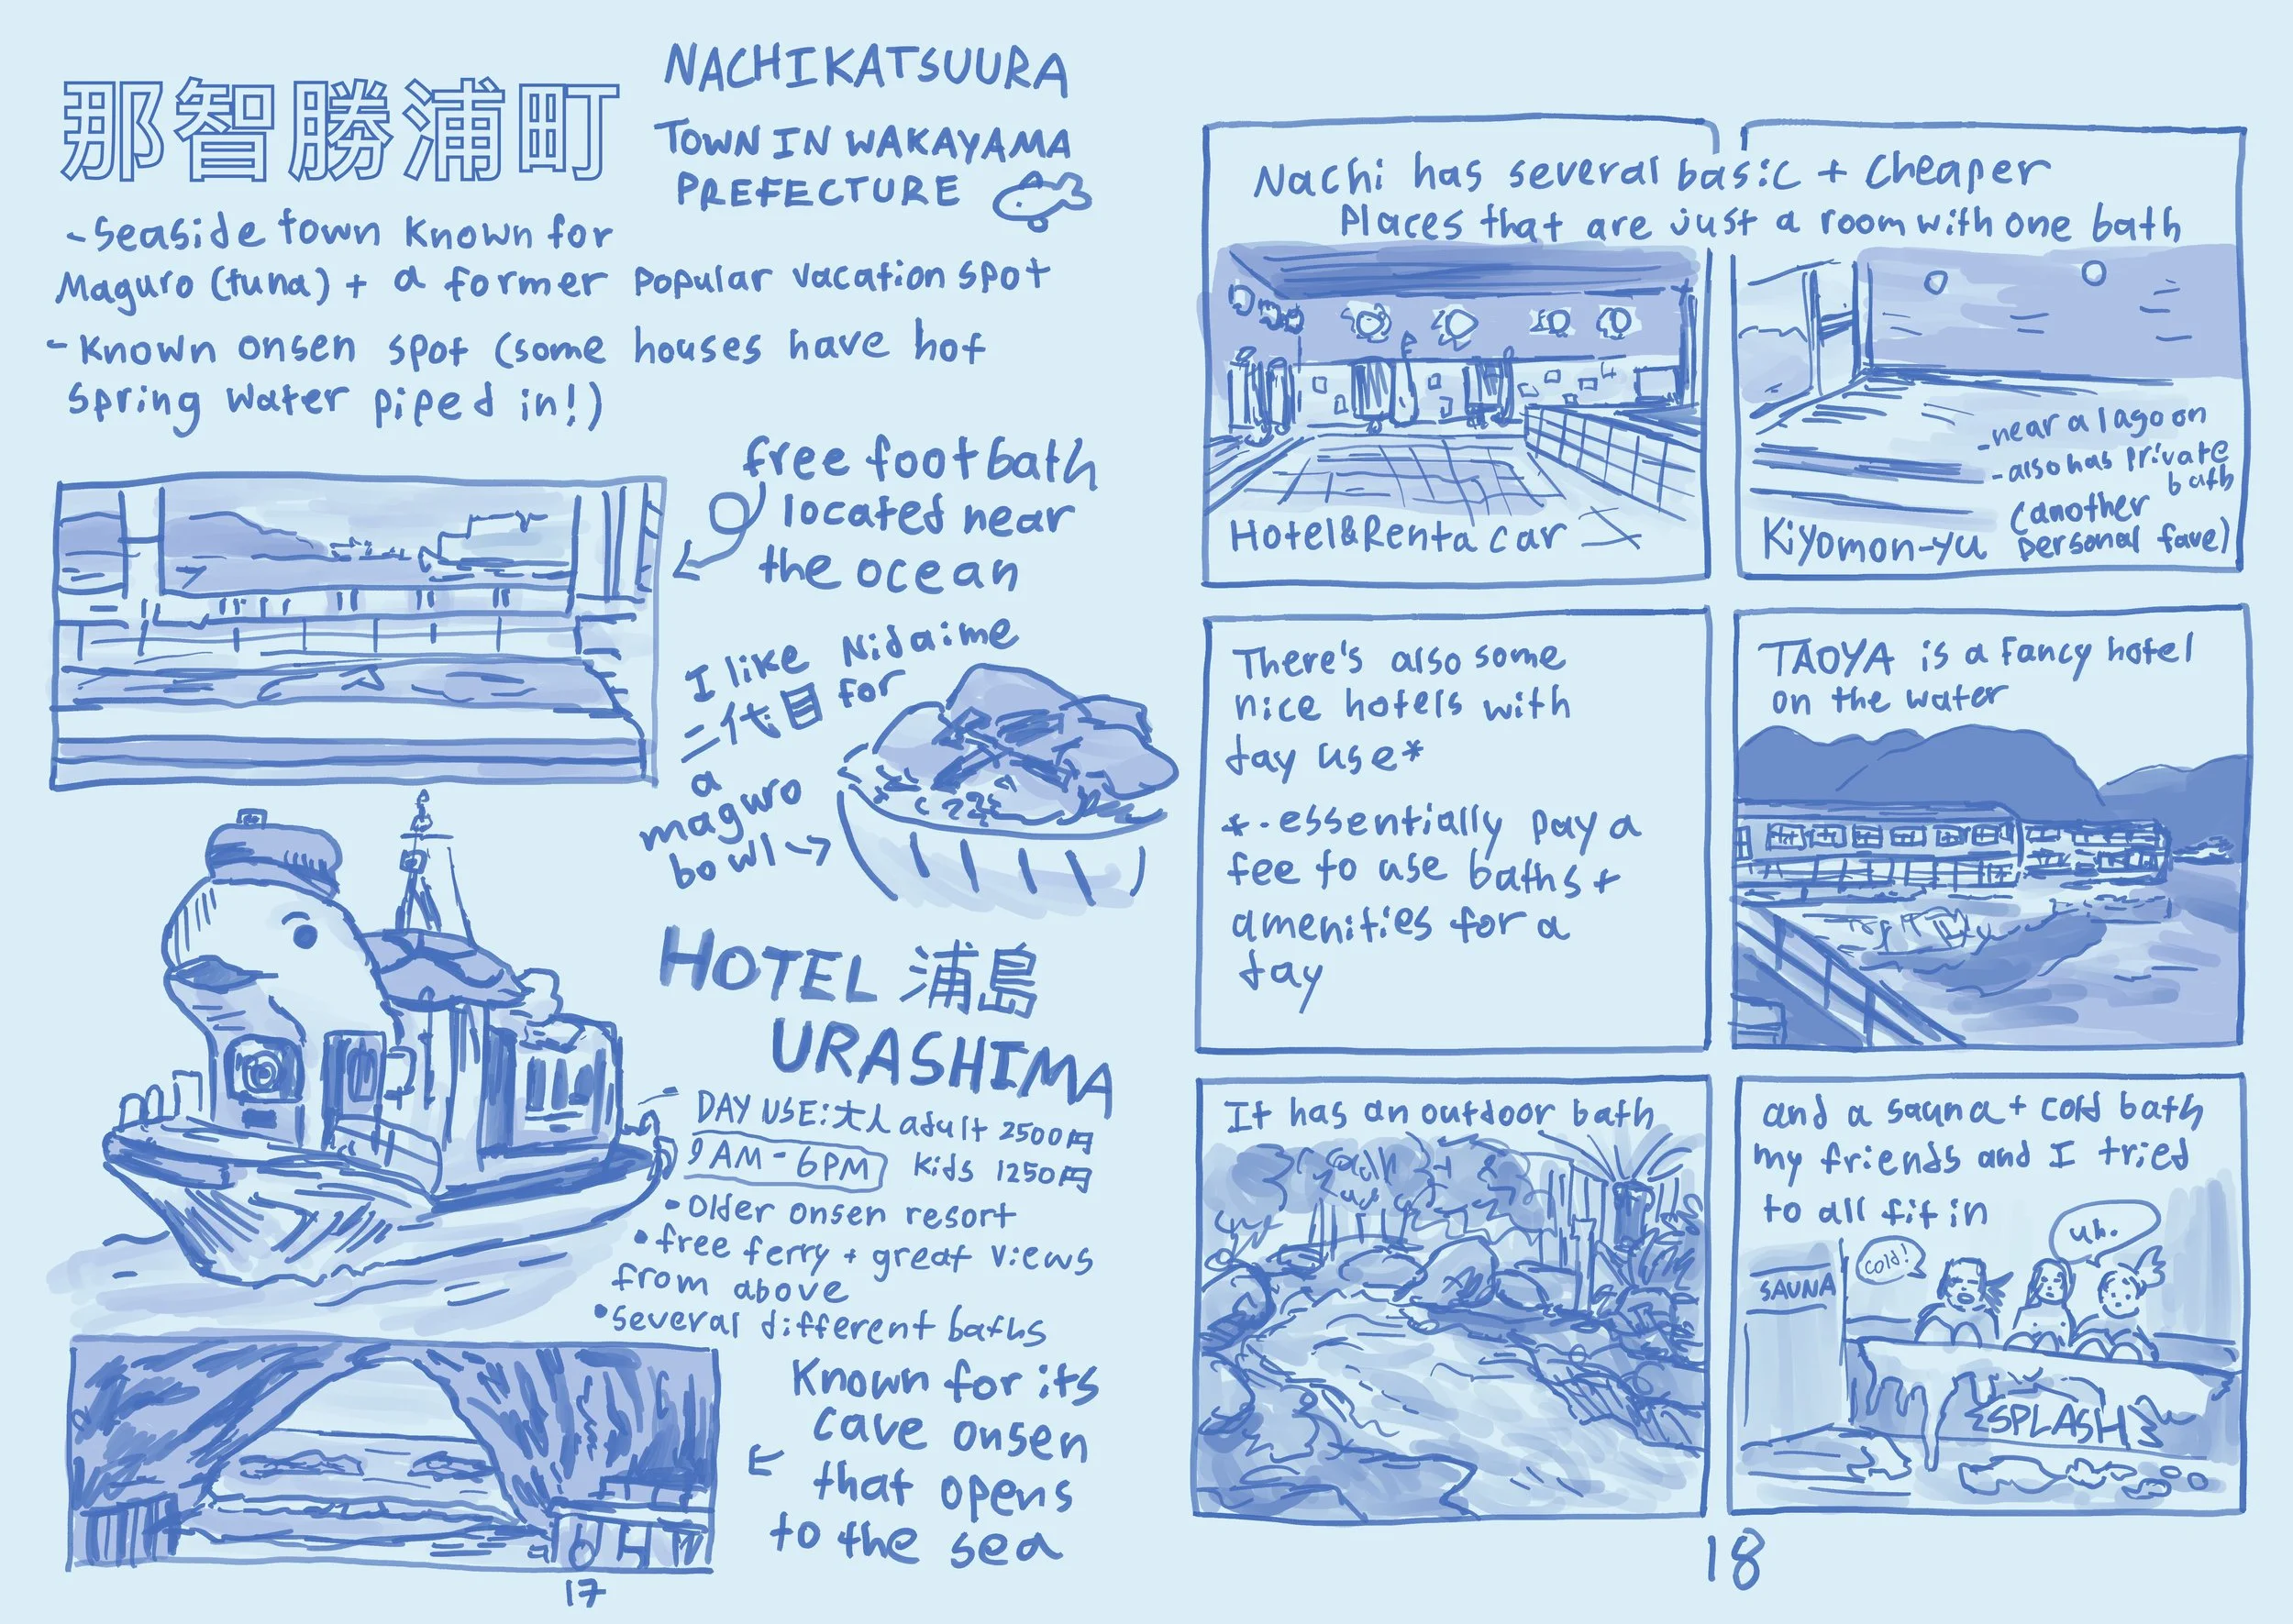 那智勝浦町
NACHIKATSUURA
TOWN IN WAKAYAMA
PREFECTURE
- Seaside town known for
Maguro (tuna) + a former popular vacation spot
- Known onsen spot (some houses have hot
spring water piped in!)
free foot bath
located near
the ocean
I like Nidaime
二代目 for
a
maguro
bowl
HOTEL 浦島
URASHIMA
- DAY USE: 大人 adult 2500円
9AM - 6PM kids 1250円
• Older onsen resort
• free ferry + great views
from above
• several different baths
Known for its
cave onsen
that opens
to the sea
17
Nachi has several basic + cheaper
places that are just a room with one bath
Hotel&Renta car
- near a lagoon
- also has private
bath
(another
personal fave)
Kiyomon-yu
There's also some
nice hotels with
day use*
* - essentially pay a
fee to use baths +
amenities for a
day
TAOYA is a fancy hotel
on the water
It has an outdoor bath
and a sauna + cold bath
my friends and I tried
to all fit in
uh.
cold!
SAUNA
SPLASH
18